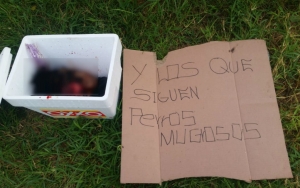 Y LOS QUE
SIGUEN
PERROS
MUGROSOS